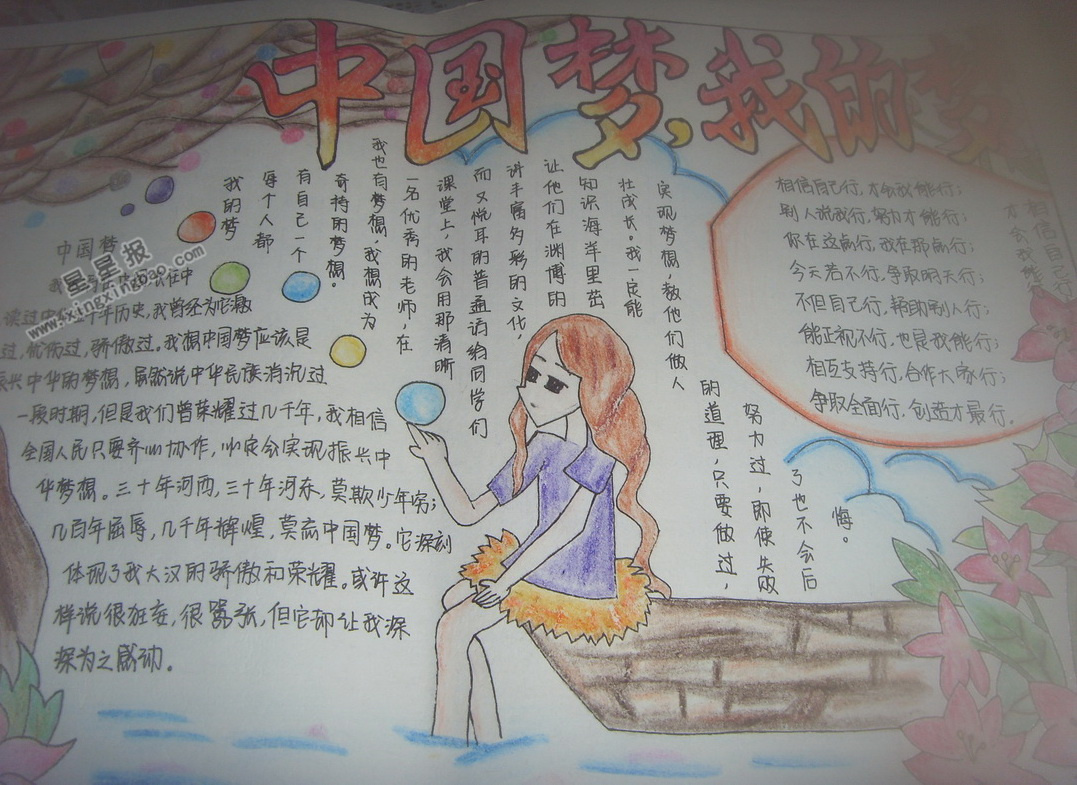 中国梦,我的梦
中国梦
长在中
读过中华五千年历史,我曾经为它激
过,忧伤过,骄傲过。我想中国梦应该是
振兴中华的梦想,虽然说中华民族消沉过
一段时期,但是我们曾荣耀过几千年,我相信
全国人民只要齐心协作,必定会实现振兴中
华梦想。三十年河西,三十年河东,莫欺少年穷;
几百年屈辱,几千年辉煌,莫笑中国梦。它深刻
体现了我大汉的骄傲和荣耀。或许这
样说很狂妄,很嚣张,但它却让我深
深为之感动。
我的梦
每个人都
有自己一个
奇特的梦想。
我也有梦想,我想成为
一名优秀的老师,在
课堂上,我会用那清晰
而又悦耳的普通话给同学们
讲丰富多彩的文化,
让他们在渊博的
知识海洋里茁
壮成长。我一定能
实现梦想,教他们做人
的道理,只要做过,
努力过,即使失败
了也不会后
悔。
相信自己行,才会我能行;
别人说我行,努力才能行;
你在这点行,我在那点行;
今天若不行,争取明天行;
不但自己行,帮助别人行;
能正视不行,也是我能行;
相互支持行,合作大家行;
争取全面行,创造才最行。
相信自己行
才会我能
星星报
www.xingxingbao.com